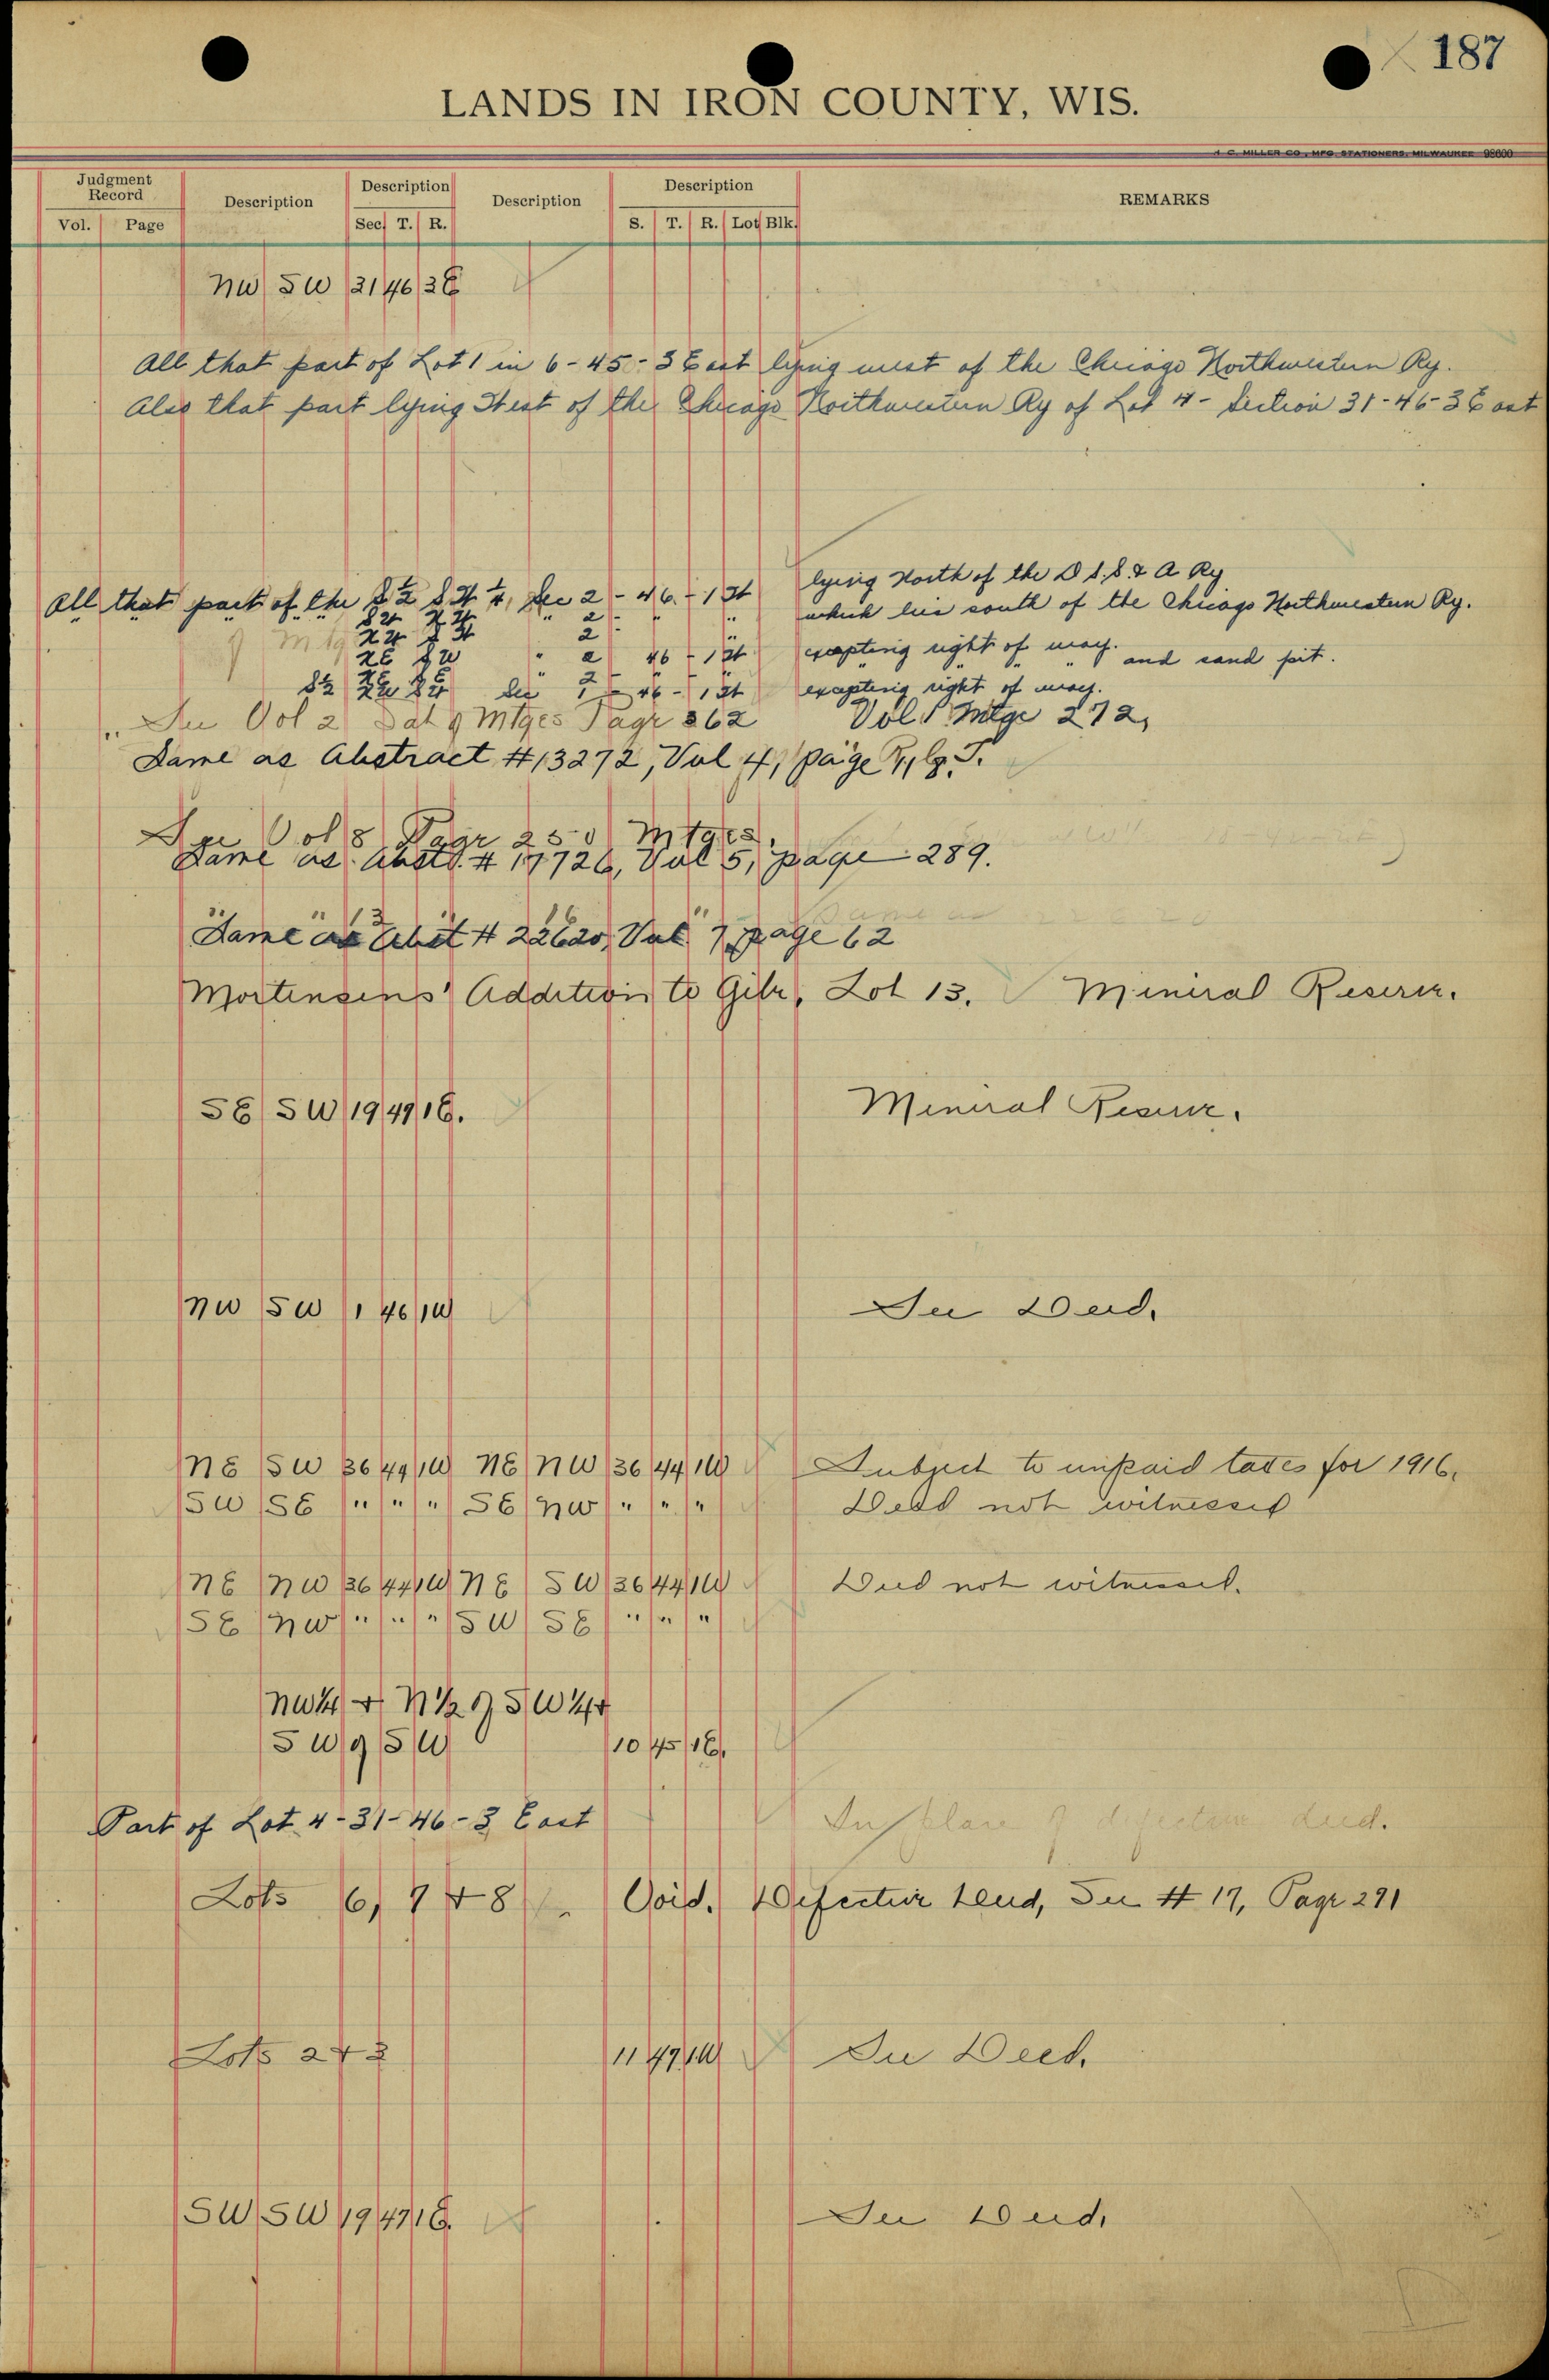 187
LANDS IN IRON COUNTY, WIS.
H. C. MILLER CO., MFG STATIONERS, MILWAUKEE 98600
Judgment Record
Vol. Page
Description
Description
Sec T. R.
Description
Description
S. T. R. Lot Blk.
REMARKS
NW SW 21 46 3E
All that part of Lot 1 in 6-45-3 East lying west of the Chicago Northwestern Ry.
Also that part lying West of the Chicago Northwestern Ry of Lot 4 - Section 31-46-3 East
All that part of the S 1/2 Sec 2 - 46 - 1 W lying North of the D S. S. & A Ry
2 which lies south of the Chicago Northwestern Ry.
2
NE SW " 2 46 - 1 W excepting right of way. and sand pit.
S 1/2 Sec 46 - 1 W excepting right of way.
See Vol 2 Mtges Page 362 Vol Mtge 272,
Same as Abstract #13272, Vol 4, page
See Vol 8 Page 250 Mtges.
Same as Abst. # 17726, Vol 5, page 289.
Same as Abst # 22620, Vol 7, page 62
Same as
Mortensens' Addition to Gile, Lot 13. Mineral Reserve.
SE SW 19 47 1E. Mineral Reserve.
NW SW 1 46 1W See Deed.
NE SW 36 44 1W NE NW 36 44 1W Subject to unpaid taxes for 1916.
SW SE " " " SE NW " " " Deed not witnessed
NE NW 36 44 1W NE SW 36 44 1W Deed not witnessed.
SE NW " " " SW SE " " "
NW 1/4 + N 1/2 of SW 1/4
SW of SW 10 45 1E.
Part of Lot 4-31-46-3 East In place of defective deed.
Lots 6, 7 + 8 Void. Defective Deed, See # 17, Page 291
Lots 2 + 3 11 47 1W See Deed.
SW SW 19 47 1E. See Deed.